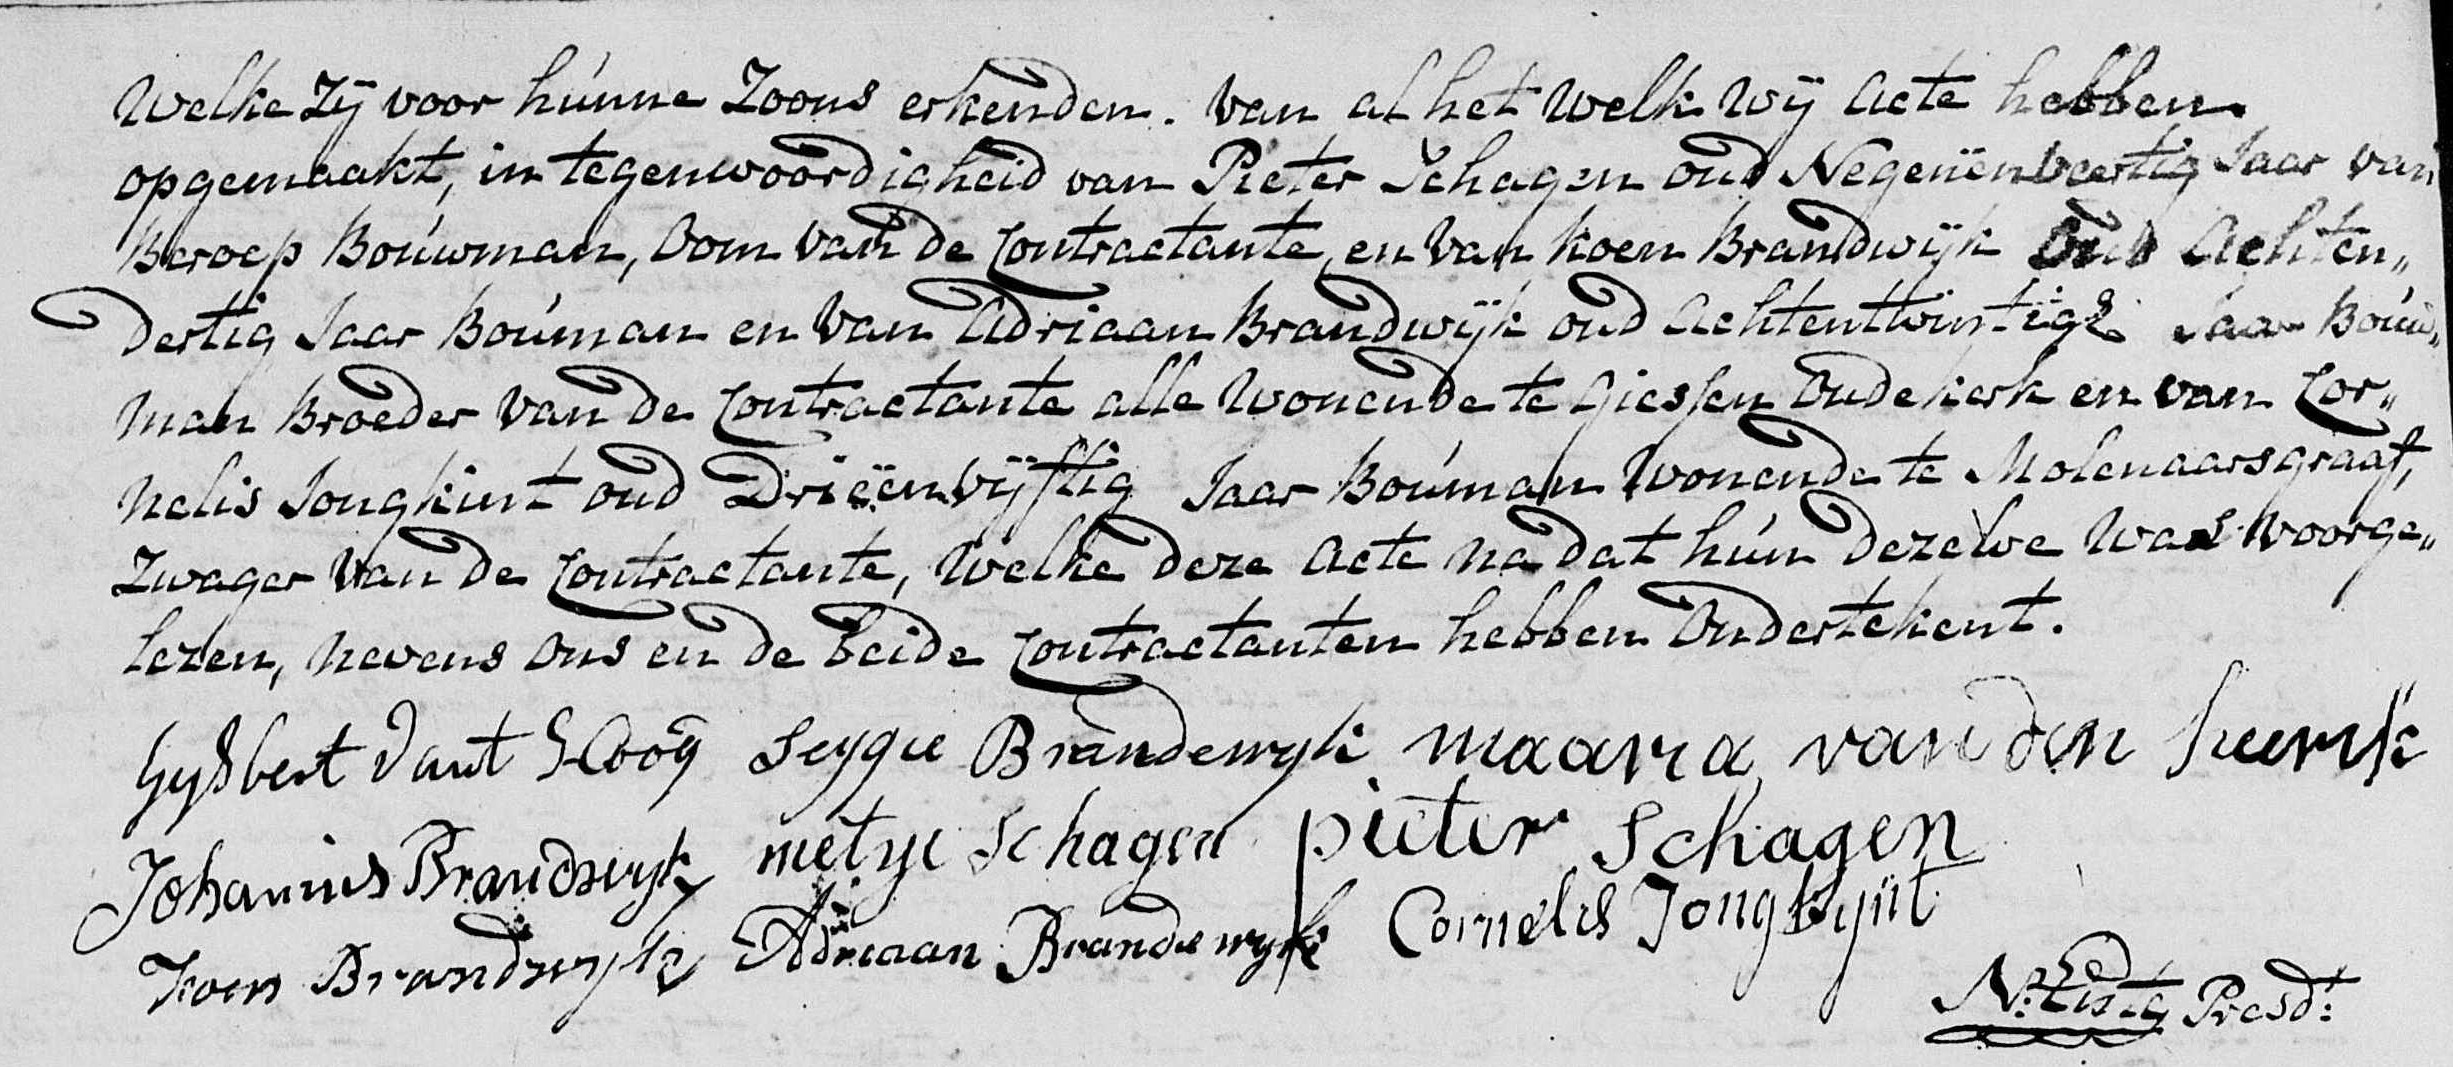 Welke Zÿ voor húnne Zoons erkenden. Van al het Welk Wÿ Acte hebben
opgemaakt, in tegenwoordigheid van Pieter Schagen oud Negenënveertig Jaar van
Beroep Boúwman, Oom van de Contractante, en Van Koen Brandwÿk Oud Achten„
dertig Jaar Boúman en Van Adriaan Brandwÿk oud Achtentwintig Jaar Boúw„
man Broeder Van de Contractante alle Wonende te Giessen Oudekerk en van Cor„
nelis Jongkint oud Drieënvÿftig Jaar Boúman Wonende te Molenaarsgraaf,
Zwager Van de Contractante, Welke deze Acte na dat hún dezelve Was Voorge„
lezen, nevens Ons en de beide Contractanten hebben Ondertekent.
Gysbert vant Hoog Seygie Brandewyk maaria van den heuvel
Johannis Brandwyk metye Schagen pieter Schagen
Koen Brandwyk Adriaan Brandewyk Cornelis Jongkynt
Presdt: